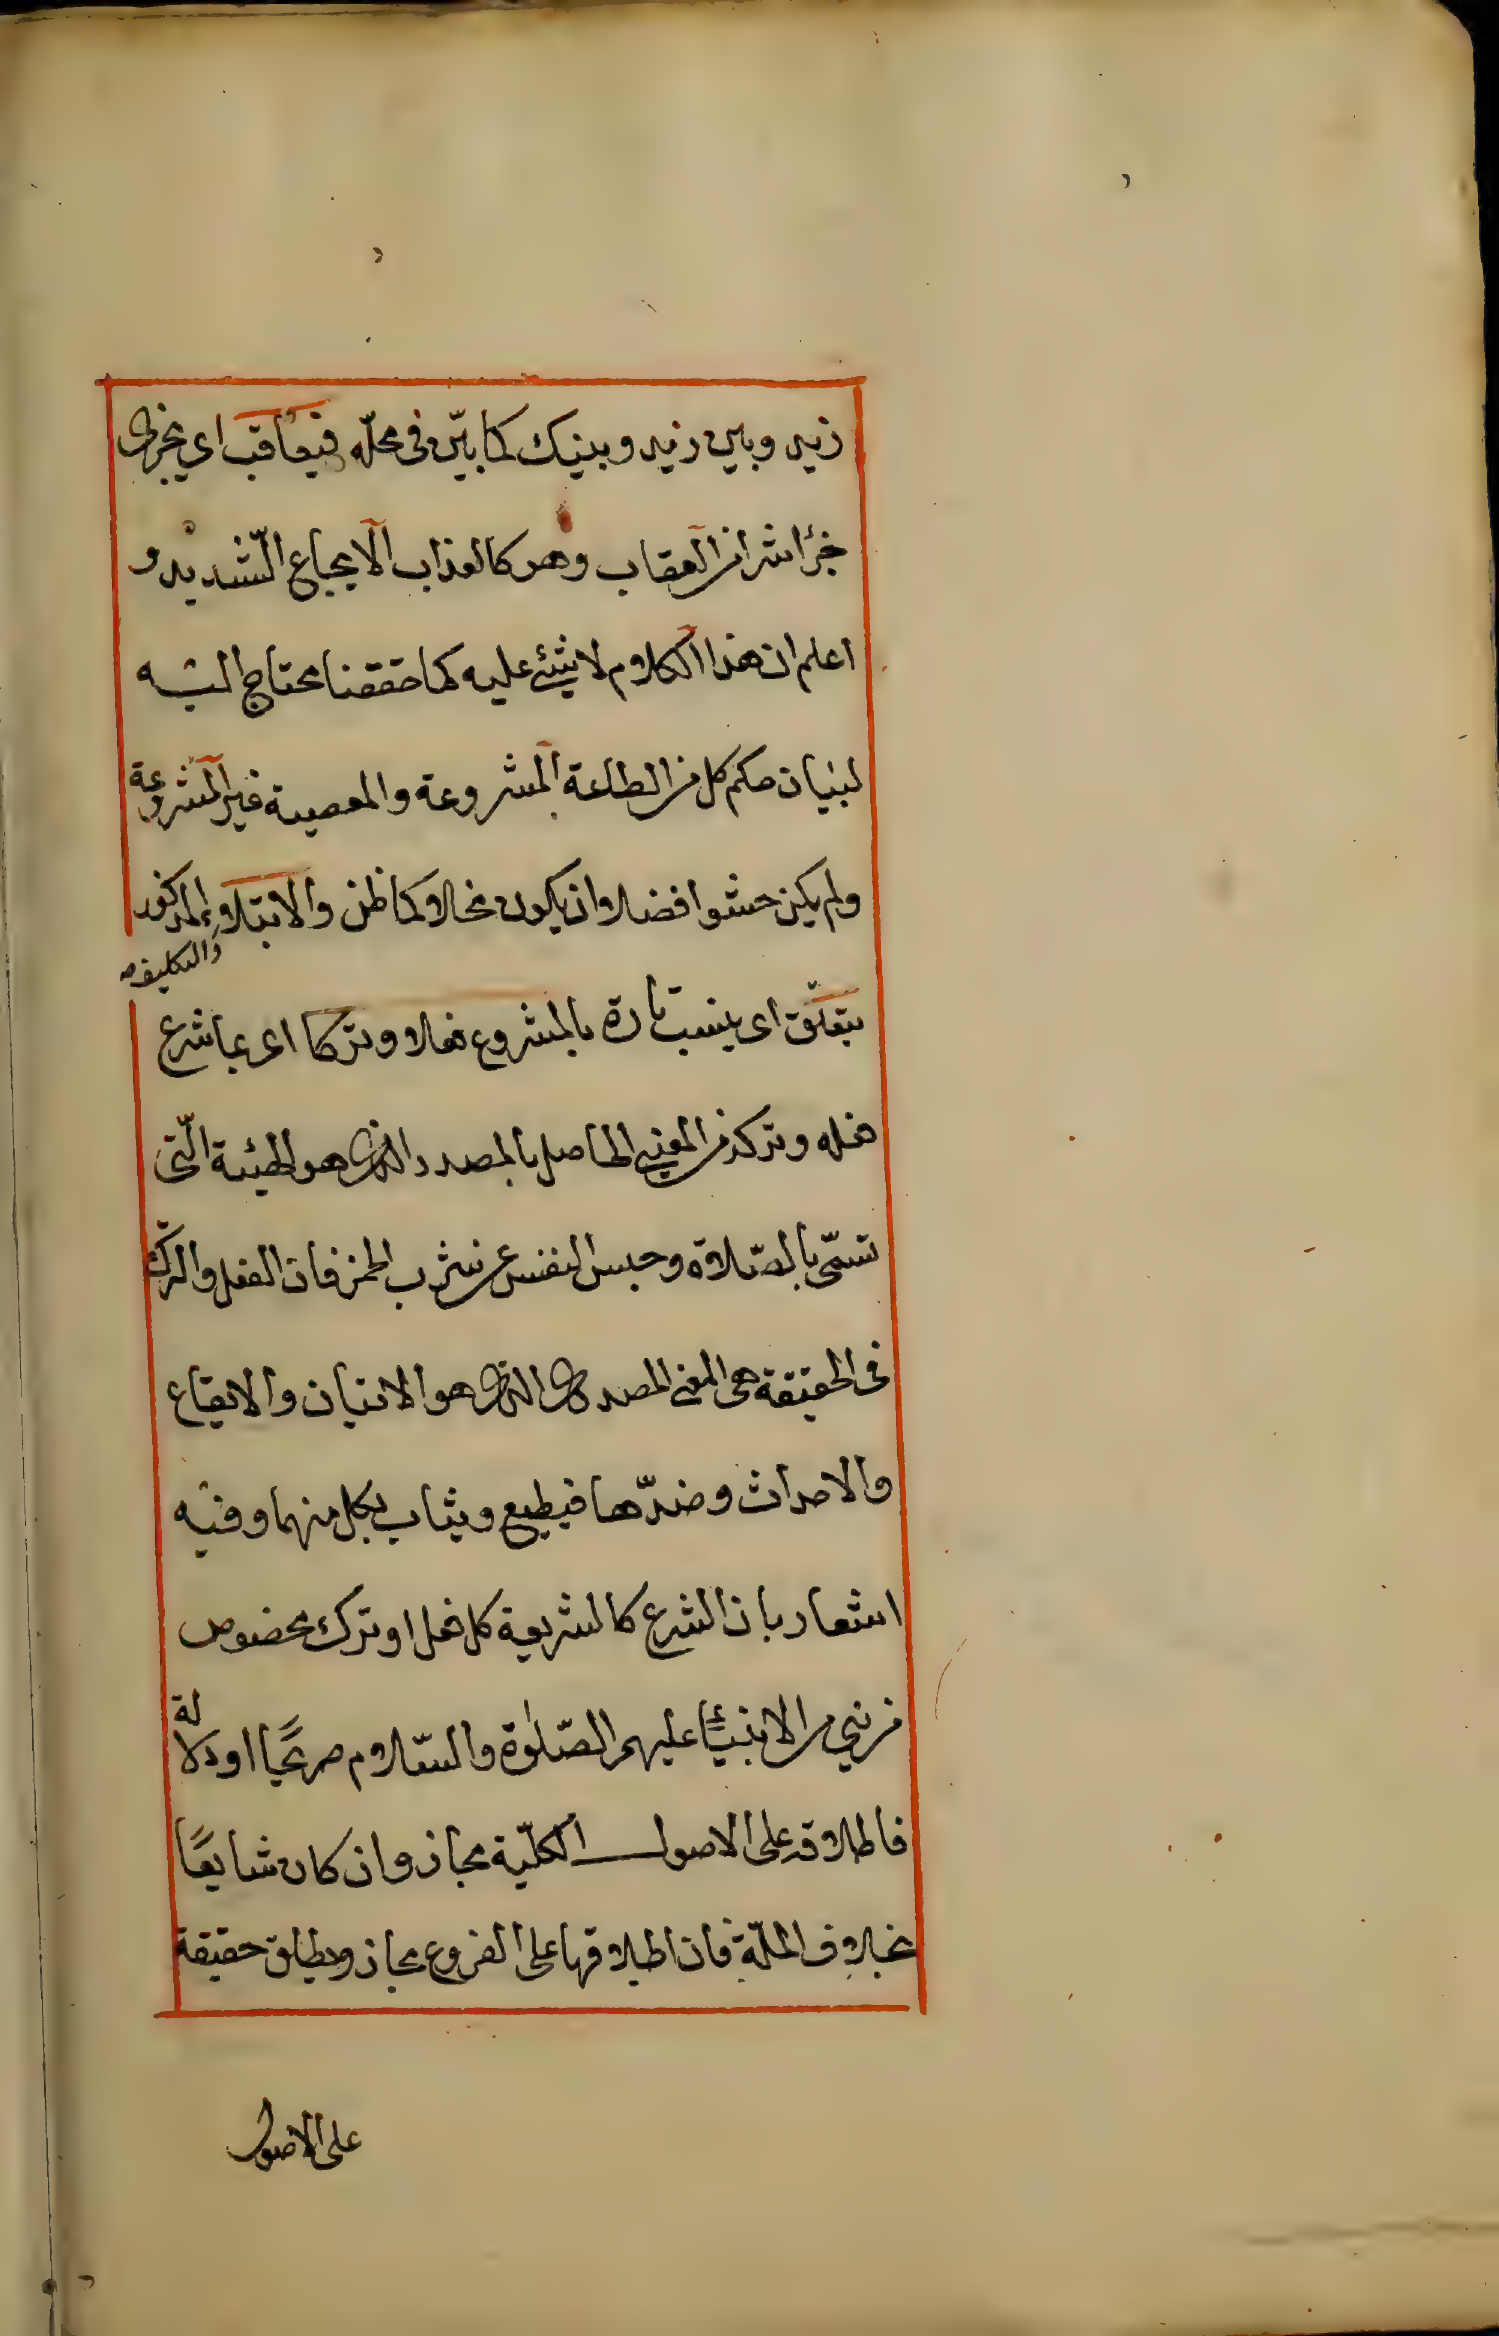 زيد وبين زيد وبينك كما بيّن فى محلّه فيعاقب اى يجزى
جزأ اشر من العقاب وهو كالعذاب الايجاع الشّديد و
اعلم ان هذا الكلام لا شئ عليه كما حققنا محتاج اليه
لبيان حكم كل من الطاعة المشروعة والمعصية غير المشروعة
ولم يكن حشوا فضلا وان يكون مخلا كما ظن والابتلاء المذكور
والتكليف
يتعلّق اى ينسب تارة بالمشروع فعلا وتركا اى بما شرع
فعله وتركه من المعنى الحاصل بالمصدر الذى هو الهيئة الّتى
تسمّى بالصّلاة وحبس النفس عن شرب الخمر فان الفعل والترك
فى الحقيقة هى المعنى المصدرى الذى هو الاتيان والايقاع
والاحداث وضدّها فيطيع ويثاب بكل منهما وفيه
اشعار بان الشرع كالشريعة كل فعل او ترك مخصوص
من نبي من الانبيٓاء عليهم الصّلوٰة والسّلام صريحًا او دلالة
فاطلاقه على الاصول الكلّية مجاز وان كان شايعًا
بخلاف الملّة فان اطلاقها على الفروع مجاز ويطلق حقيقة
على الاصول